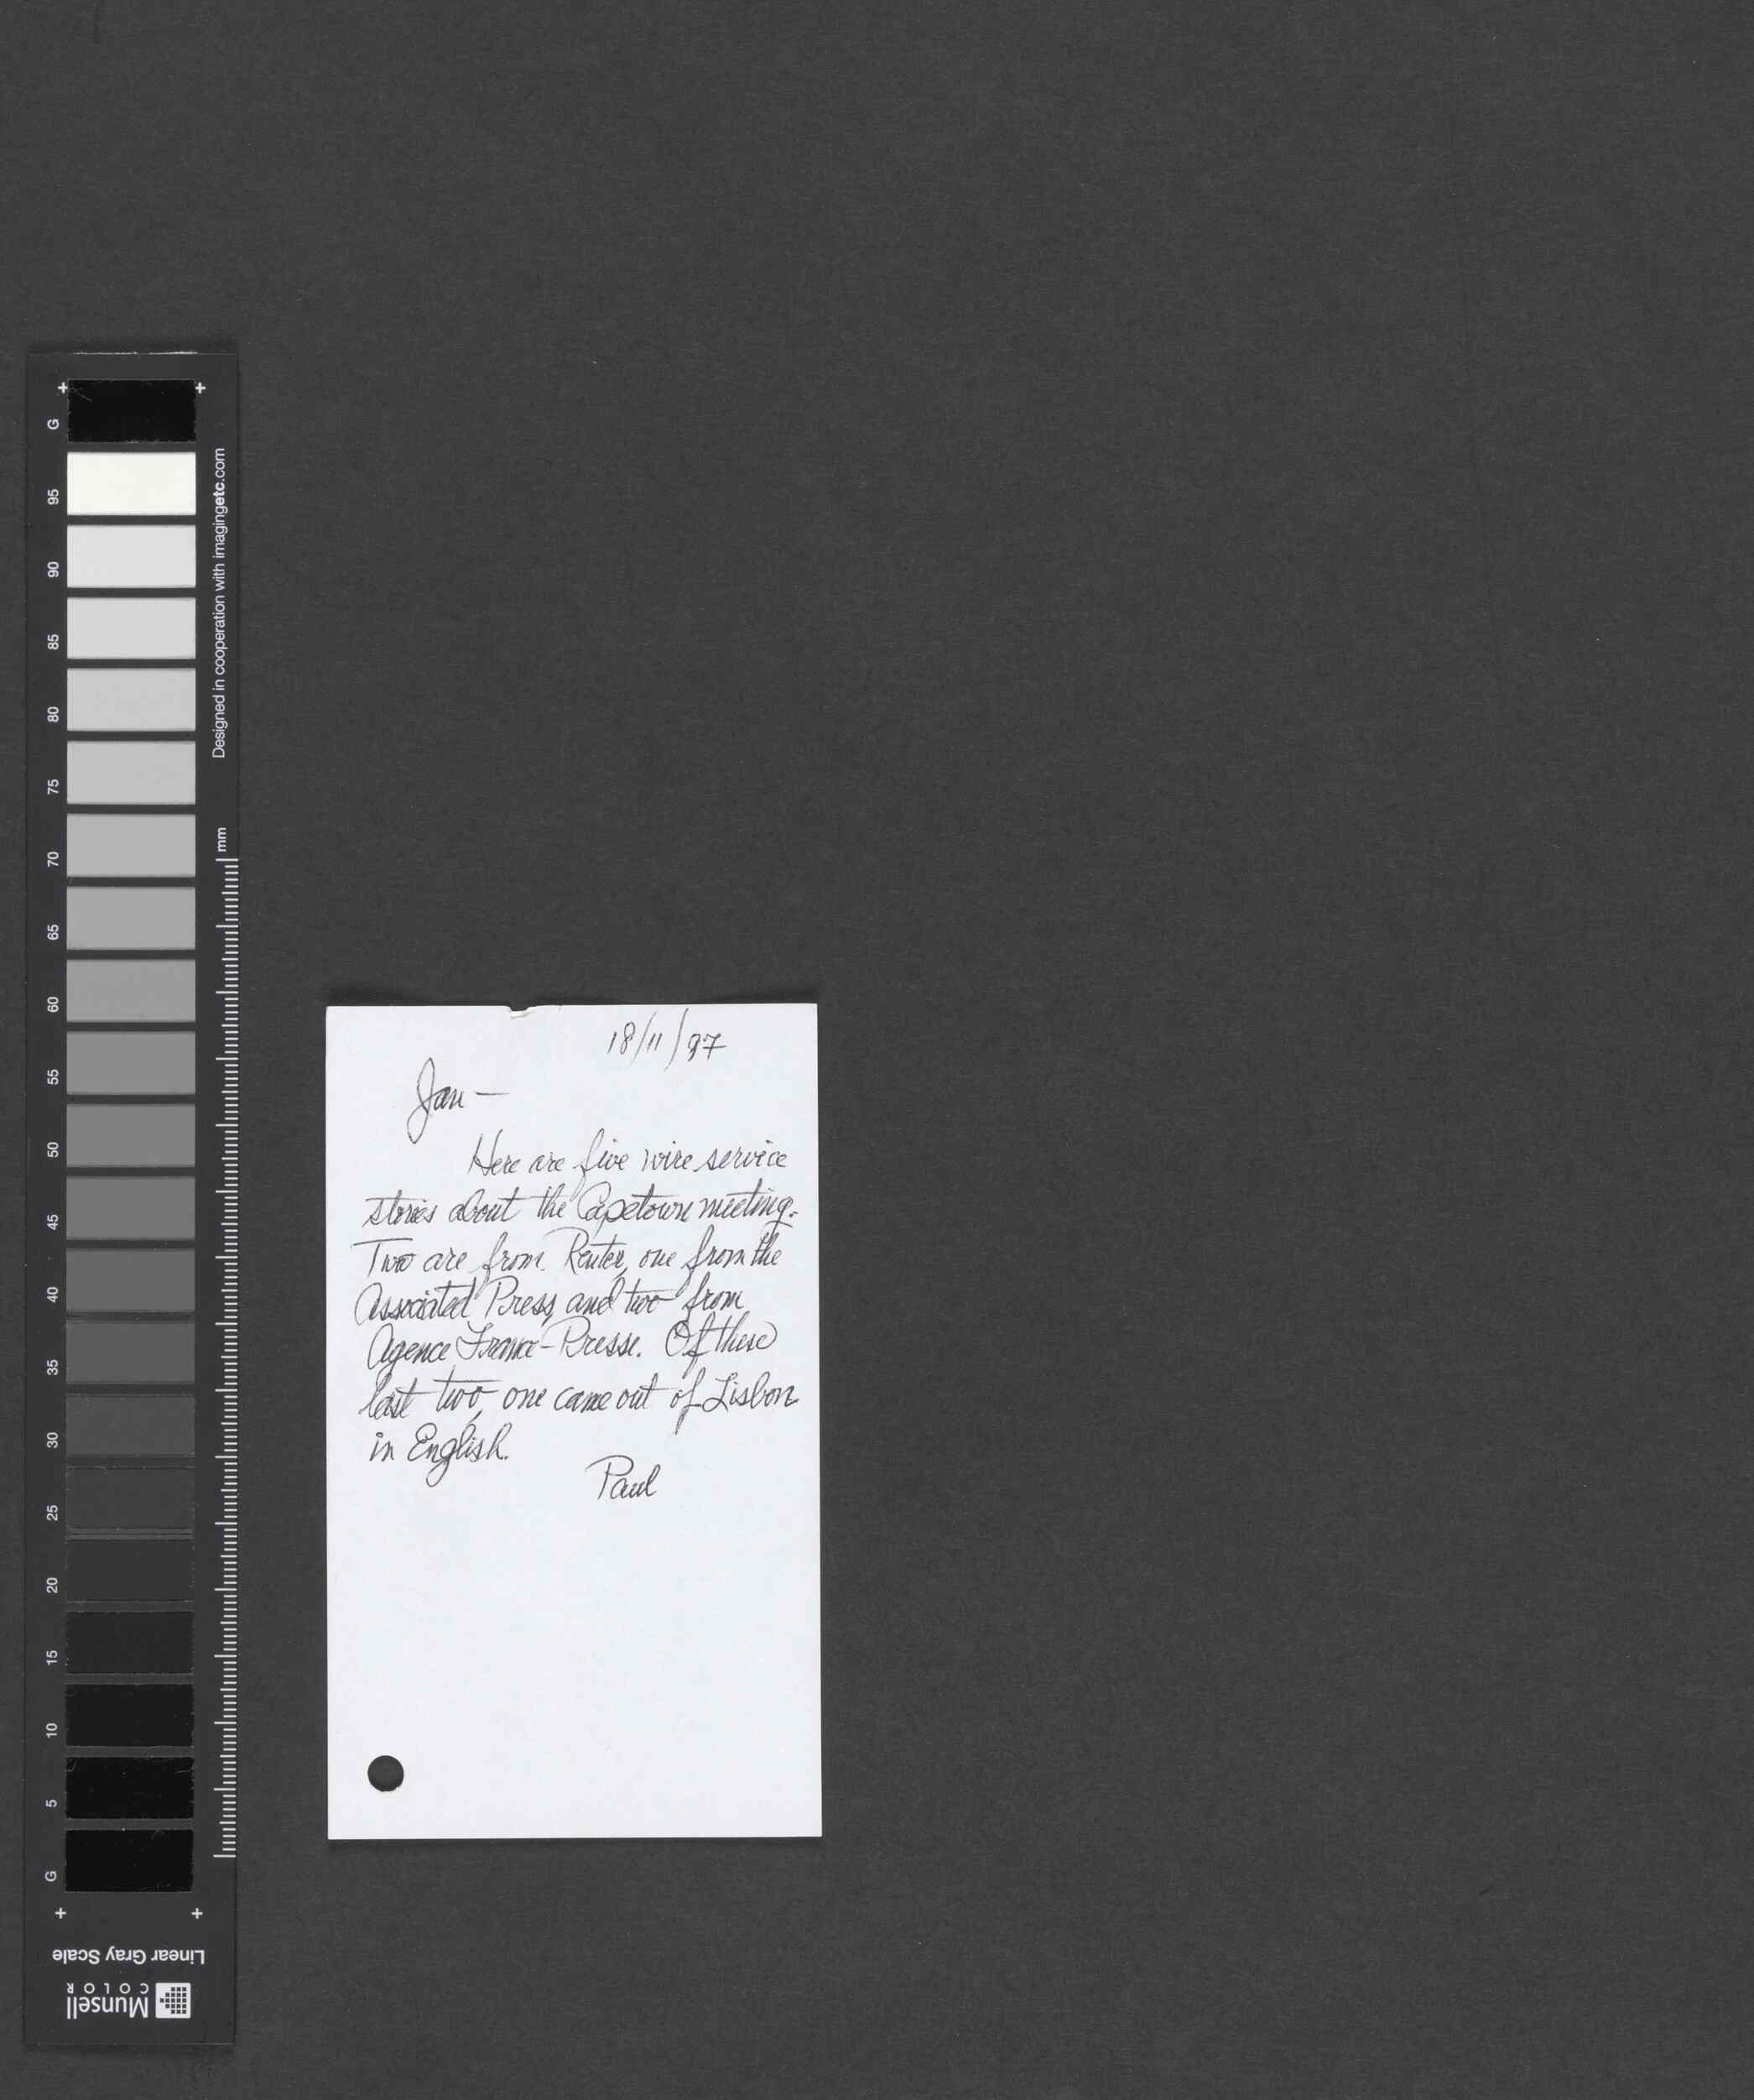 18/11/97
Jan —
Here are five wire service
stories about the Capetown meeting.
Two are from Reuter, one from the
Associated Press, and two from
Agence France-Presse. Of these
last two, one came out of Lisbon
in English.
Paul
G
95
90
85
80
75
70
65
60
55
50
45
40
35
30
25
20
15
10
5
G
Designed in cooperation with imagingetc.com
mm
Linear Gray Scale
Munsell
COLOR